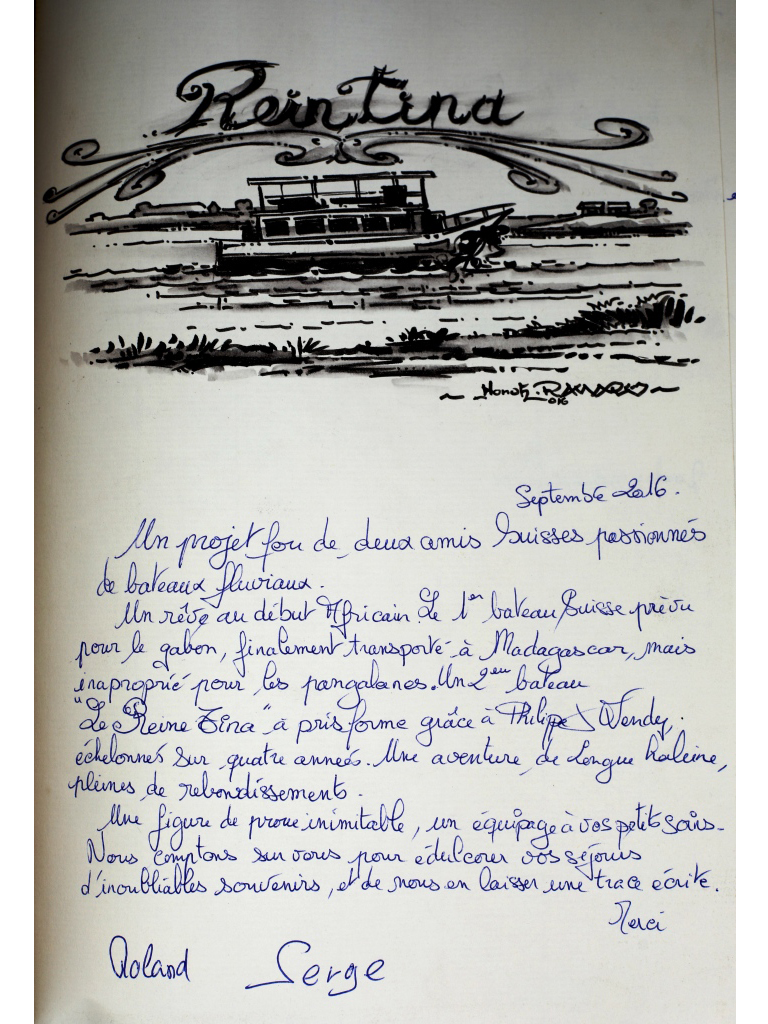 Reintina
Septembre 2016.
Un projet fou de deux amis Suisses passionnés
de bateaux fluviaux.
Un rêve au début Africain. Le 1er bateau Suisse prévu
pour le gabon, finalement transporté à Madagascar, mais
inaproprié pour les pangalanes. Un 2eme bateau
"Le Reine Tina" à pris forme grâce à Philipe & Wendy,
échelonnés sur quatre années. Une aventure de longue haleine,
pleines de rebondissements.
Une figure de proue inimitable, un équipage à vos petits soins.
Nous comptons sur vous pour édulcorer vos séjours
d'inoubliables souvenirs, et de nous en laisser une trace écrite.
Merci
Roland Serge